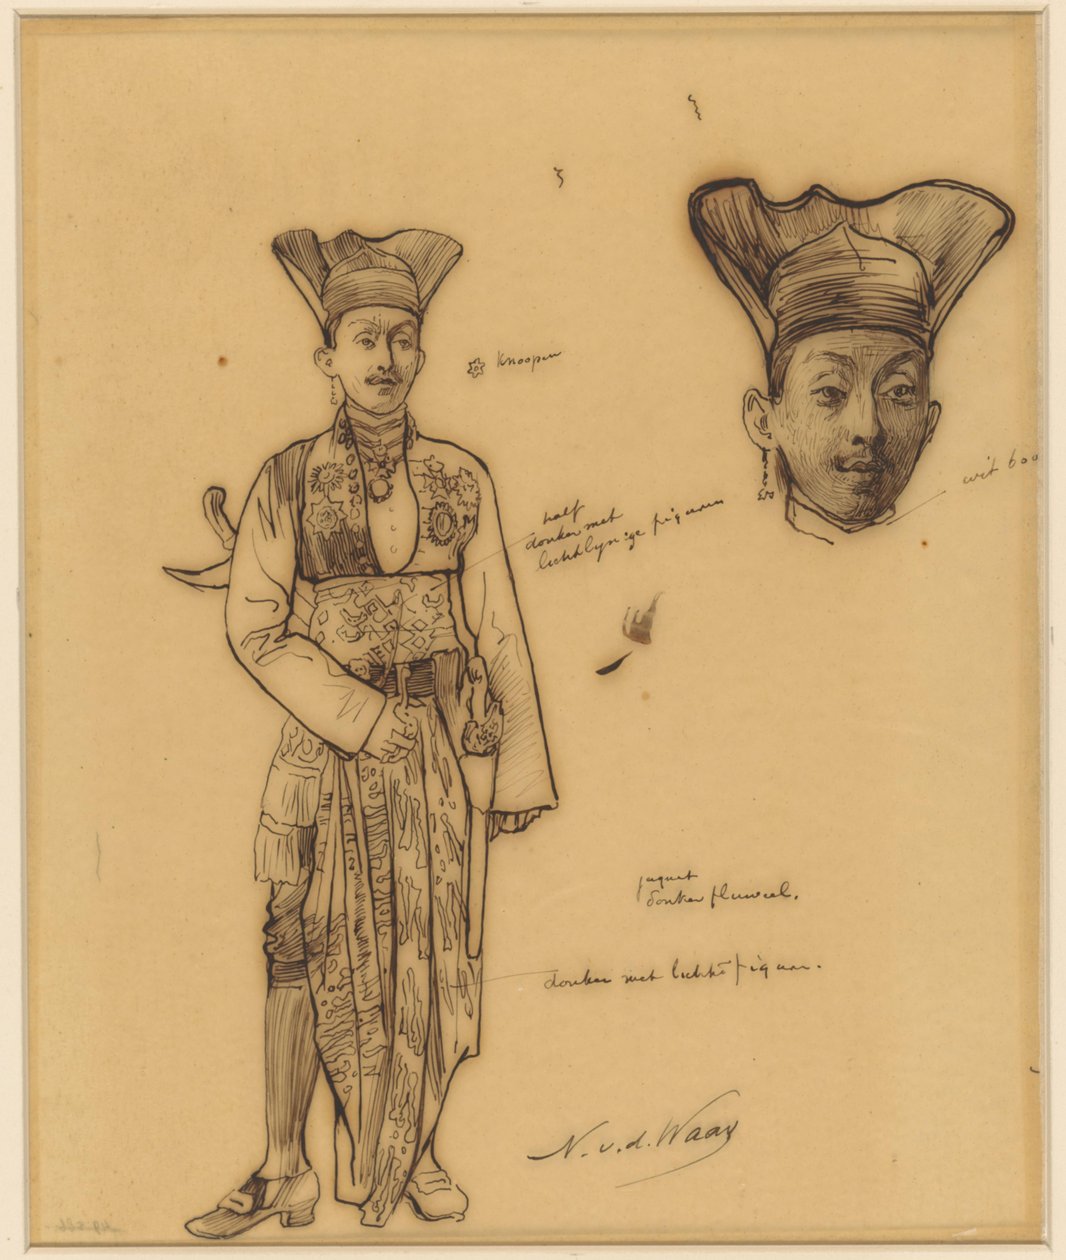 Knoopen
wit boo
half
donker met
lichtlijnige figuren
jaquet
donker fluweel.
donker met lichte figuren.
N. v. d. Waay